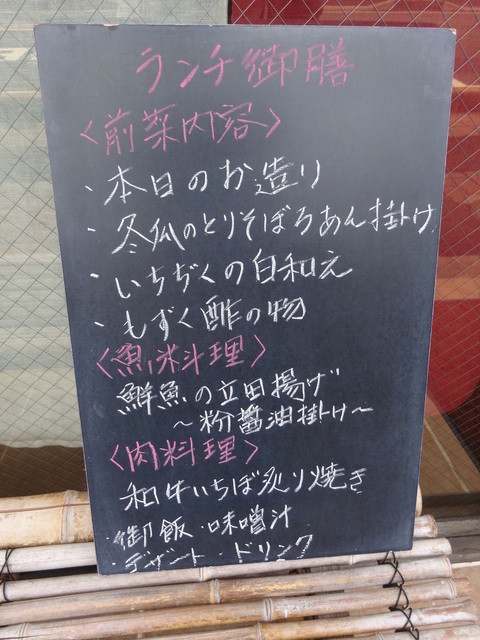 ランチ御膳
〈前菜内容〉
・本日のお造り
・冬瓜のとりそぼろあん掛け
・いちぢくの白和え
・もずく酢の物
〈魚料理〉
鮮魚の立田揚げ
～粉醤油掛け～
〈肉料理〉
和牛いちぼ炙り焼き
・御飯・味噌汁
・デザート・ドリンク